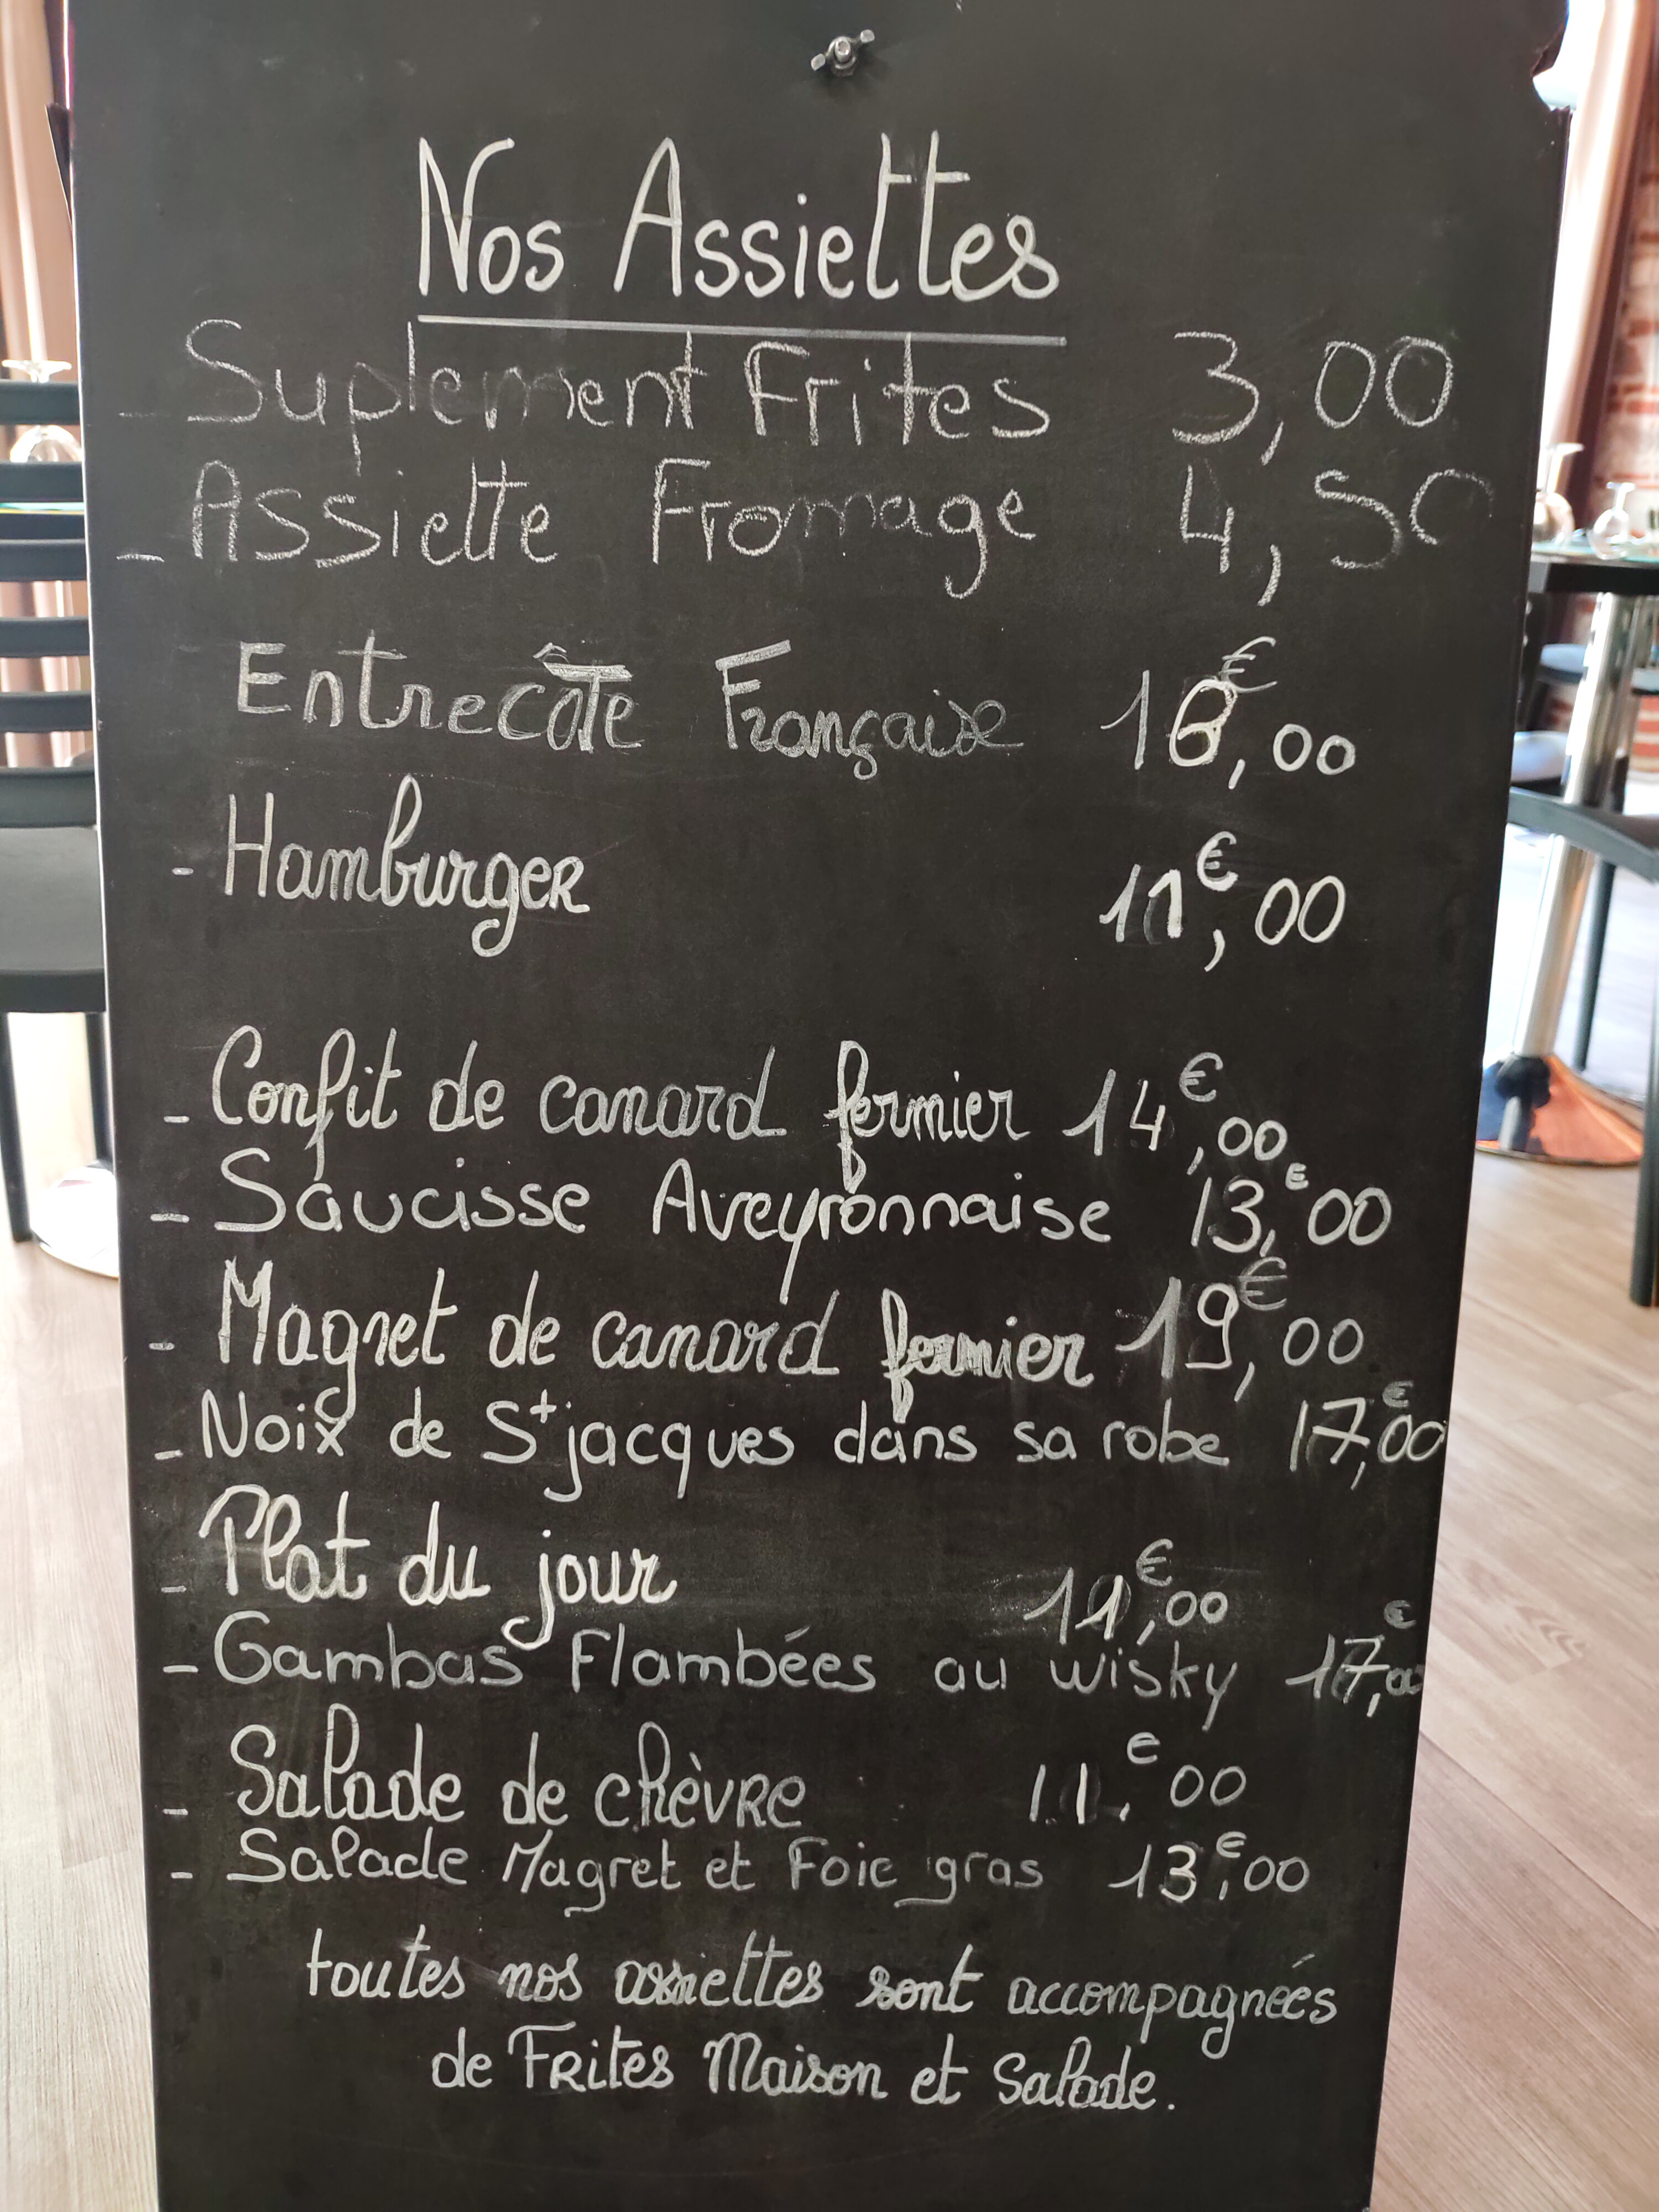 Nos Assiettes
- Suplement Frites 3,00
- Assiette Fromage 4,50
Entrecôte Française €,00
- Hamburger 11€,00
- Confit de canard fermier 14€,00
- Saucisse Aveyronnaise 13,€00
- Magret de canard fermier 19€,00
- Noix de St jacques dans sa robe 17,€00
- Plat du jour 11€,00
- Gambas Flambées au wisky 17,€00
- Salade de chèvre 11,€00
- Salade Magret et Foie gras 13,€00
toutes nos assiettes sont accompagnées
de Frites Maison et Salade.